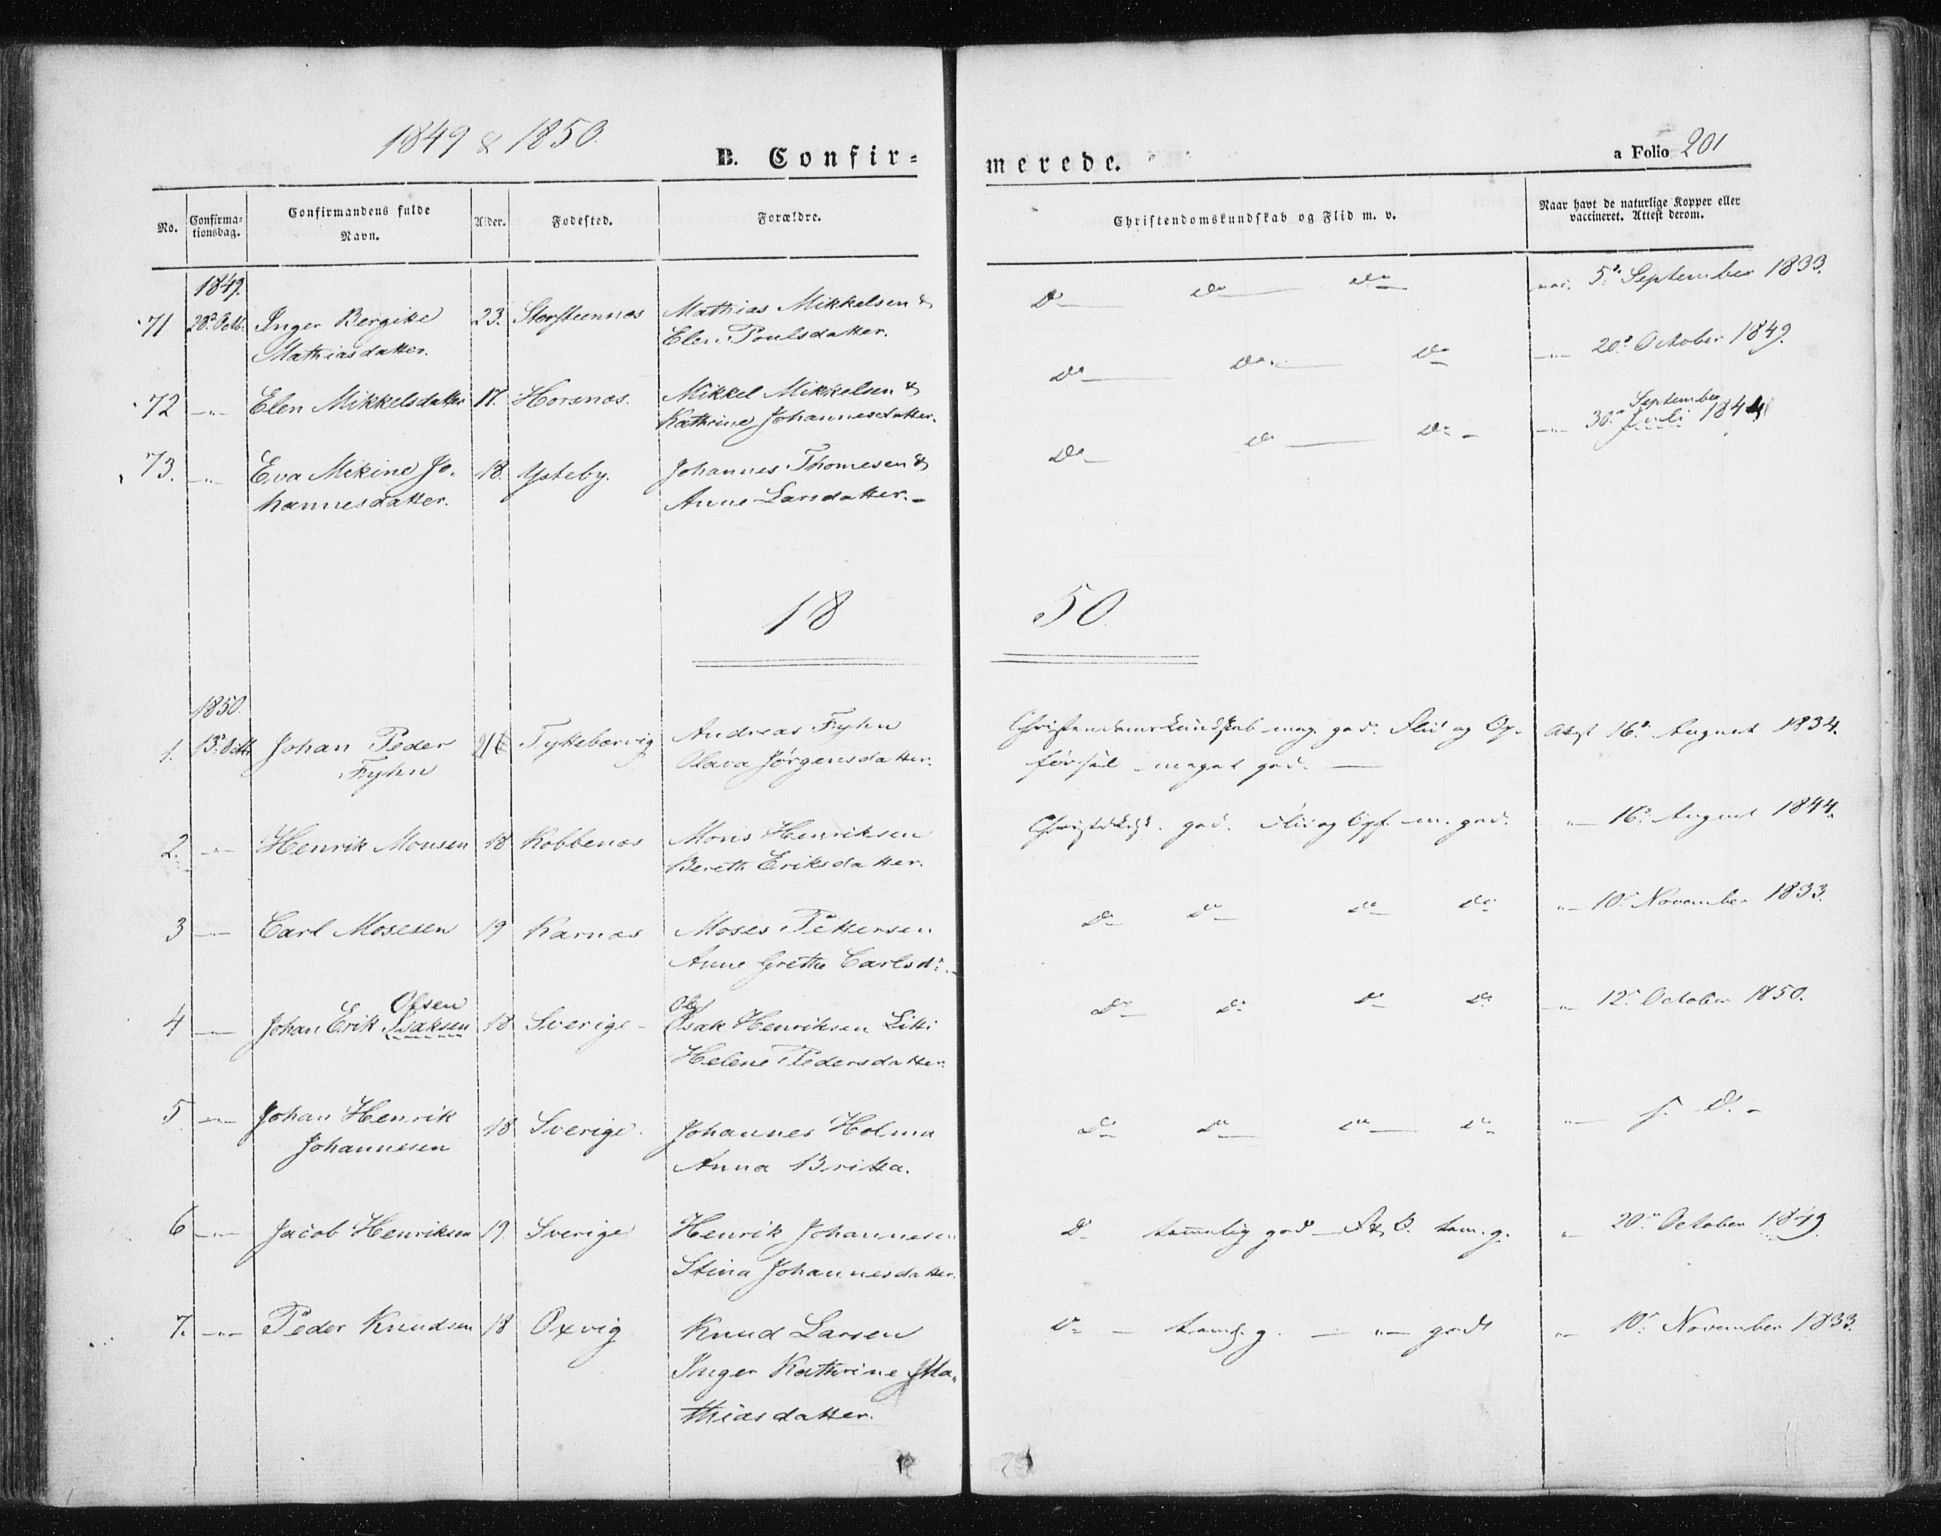 1849 & 1850.
B. Confir-
merede.
a Folio 201
No.
Confirma-
tionsdag.
Confirmandens fulde
Navn.
Alder.
Fødested.
Forældre.
Christendomskundskab og Flid m. v.
Naar havt de naturlige Kopper eller
vaccineret. Attest derom.
1849.
71 28de Octb. Inger Bergitte 23. Storsteennæs Mathias Mikkelsen & Do Do Do vac. 5te September 1833.
Mathiasdatter. Elen Poulsdatter.
72 -"- Elen Mikkelsdatter 17. Horsnæs. Mikkel Mikkelsen & Do Do Do -"- 20de October 1849.
Kathrine Johannesdatter.
September
73. -"- Eva Mikine Jo- 18. Ysteby. Johannes Thomesen & Do Do Do -"- 30te Juli
hannesdatter. Anne Larsdatter.
18 50.
1850.
1. 13de Octb Johan Peder Tyttebærvig Andreas Fyhn Christendomskundskab meg. god. Flid og Op- 16de August 1834.
Fyhn Olava Jørgensdatter. førsel meget god.
2. -"- Henrik Monsen 18 Kobbenæs Mons Henriksen god. Flid og Opf. m. god. -"- 16de August 1844.
Bereth Eriksdatter.
3 -"- Carl Mosesen 19 Karnæs Moses Pettersen Do Do Do Do -"- 10de November 1833.
Anne Grethe Carlsdr.
Olsen Ole
4 -"- Johan Erik Isaksen 18 Sverige Isak Henriksen Litti Do Do Do Do -"- 12te October 1850.
Helene Pedersdatter
5 -"- Johan Henrik 18 Sverige. Johannes Holma Do Do Do Do -"- s. D.
Johannesen Anna Britta.
6 -"- Jacob Henriksen 19. Sverige Henrik Johannesen Do temmelig god F. & O. tem. g. -"- 20de October 1849
Stina Johannesdatter.
7. -"- Peder Knudsen 18 Oxvig Knud Larsen Do teml. g. -"- godt -"- 10de November 1833.
Inger Kathrine Ma-
thiasdatter.